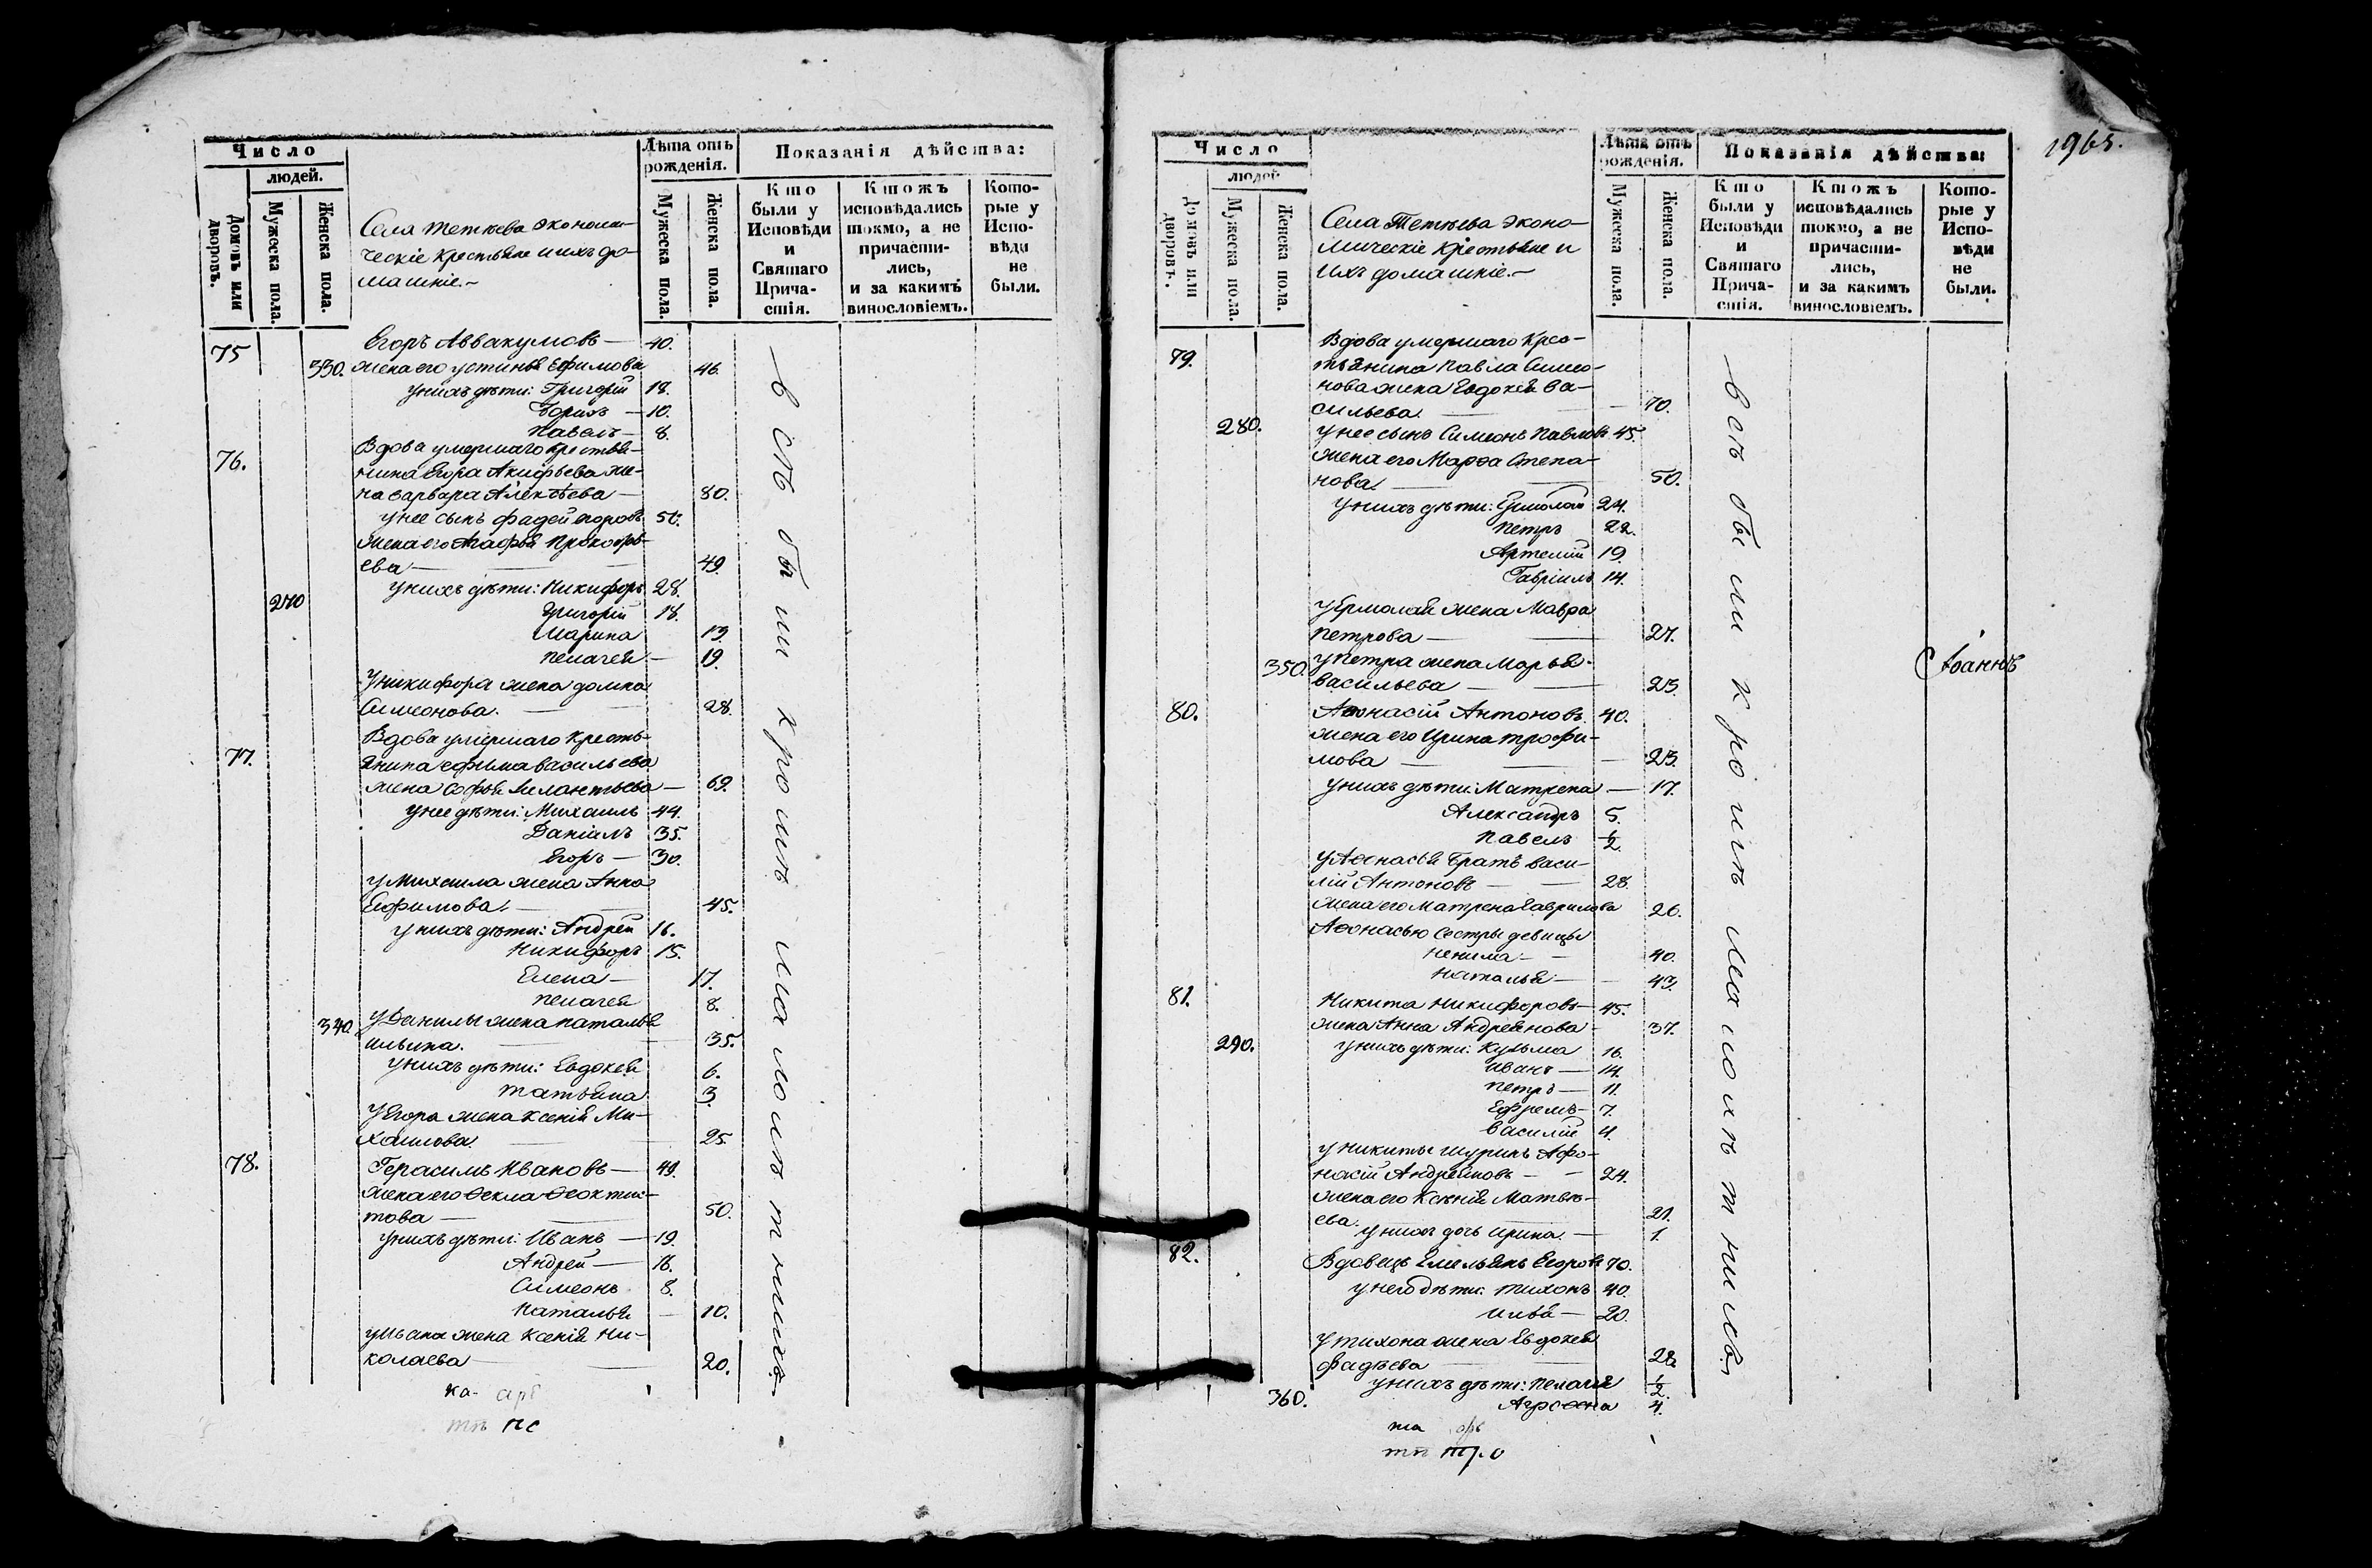 Число
людей.
Домовъ или дворовъ.
Мужеска пола.
Женска пола.
Села Теткева Экономи-
ческіе крестьяне и ихъ до-
машніе.
Лѣта отъ рожденія.
Мужеска пола.
Женска пола.
Показанія дѣйства:
Кто были у Исповѣди и Святаго Прича-стія.
Ктожъ исповѣдались токмо, а не причасти-лись, и за какимъ винословіемъ.
Кото-рые у Испо-вѣди не были.
75 Егоръ Аввакумовъ — 40.
330. жена его Устинья Ефимова 46.
у нихъ дѣти: Григорій 18.
Борисъ — 10.
Павелъ — 8.
76. Вдова умершаго крестья-
нина Егора Акифьева же-
на Варвара Алексѣева — 80.
у нее сынъ Фадей Егоровъ 50.
жена его Агафья Прокофь-
ева — 49.
у нихъ дѣти: Никифоръ 28.
270 Григорій 18.
Марина 13.
Пелагея — 19.
У Никифора жена Домна
Симеонова. — 28.
77. Вдова умершаго кресть-
янина Ефима Васильева
жена Софья Мелентьева — 69.
у нее дѣти: Михаилъ 44.
Даніилъ 35.
Егоръ — 30.
у Михаила жена Анна
Ефимова. 45.
у нихъ дѣти: Андрей 16.
Никифоръ 15.
Елена — 17.
Пелагея 8.
340. у Данилы жена Наталья
Ильина. 35.
у нихъ дѣти: Евдокея 6.
Татьяна 3.
У Егора жена Ксенія Ми-
хаилова. 25.
78. Герасимъ Ивановъ — 49.
жена его Ѳекла Ѳеокти-
това — 50.
у нихъ дѣти: Иванъ — 19.
Андрей — 16.
Симеонъ 8.
Наталья — 10.
у Ивана жена Ксенія Ни-
колаева — 20.
всѣ были кромѣ малолѣтнихъ
Число
людей
Домовъ или дворовъ.
Мужеска пола.
Женска пола.
Села Теткева Эконо-
мическіе крестьяне и
ихъ домашніе.
Лѣта отъ рожденія.
Мужеска пола.
Женска пола.
Показанія дѣйства:
Кто были у Исповѣди и Святаго Прича-стія.
Ктожъ исповѣдались токмо, а не причасти-лись, и за какимъ винословіемъ.
Кото-рые у Испо-вѣди не были.
1965.
79. Вдова умершаго крес-
тьянина Павла Симео-
нова жена Евдокея Ва-
сильева. — 70.
280. у нее сынъ Симеонъ Павловъ 45.
жена его Марѳа Степа-
нова. — 50.
у нихъ дѣти: Ермолай 24.
Петръ 22.
Артемій 19.
Гавріилъ 14.
у Ермолая жена Мавра
Петрова — 27.
350. у Петра жена Марья
Васильева — 23.
80. Аѳонасій Антоновъ. 40.
жена его Ирина Трофи-
мова — 23.
у нихъ дѣти: Матрена — 17.
Александръ 5.
Павелъ ½
у Аѳонасья братъ Васи-
лій Антоновъ — 28.
жена его Матрена Гаврилова 26.
Аѳонасью сестры девицы
40.
Наталья — 43.
81. Никита Никифоровъ — 45.
жена Анна Андреянова — 37.
290. у нихъ дѣти: Кузьма 16.
Иванъ — 14.
Петръ — 11.
Ефремъ — 7.
Василій 4.
у Никиты шуринъ Афо-
насій Андреяновъ — 24.
жена его Ксенія Матвѣ-
ева. 21.
у нихъ дочь Ирина. — 1.
82. Вдовецъ Емельянъ Егоровъ 70.
у него дѣти: Тихонъ 40.
Илья — 20.
у Тихона жена Евдокея
Фадѣева 28.
у нихъ дѣти: Пелагея ½.
360. 4.
всѣ были кромѣ малолѣтнихъ
Іоаннъ